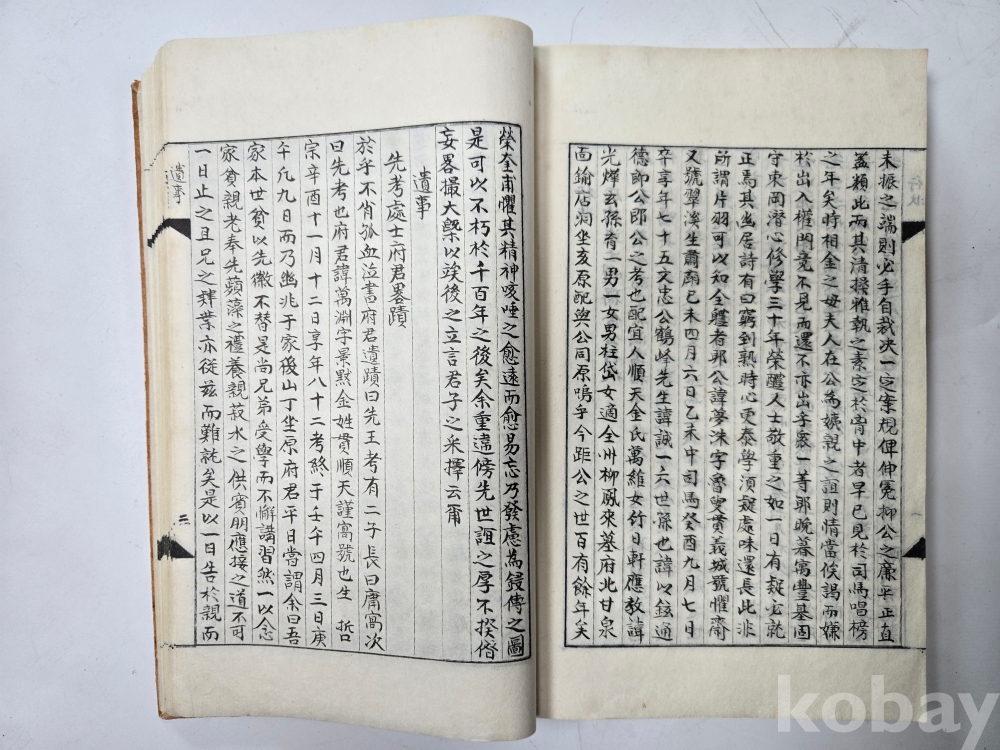 未振之端則必手自裁决一定案規俾伸冤抑公之廉平正直
蓋類此而其清操雅執之素定於胷中者早已見於司馬唱榜
之年矣時相金之毋夫人在公為姨親之誼則情當候謁而嫌
於出入權門竟不見而還不亦出乎衆一等耶晚暮寓豐基固
守東岡潛心修學三十年榮醴人士敬重之如一日有疑必就
正焉其幽居詩有曰窮到熟時心更泰學須疑處味還長此非
所謂片羽可以知全軆者耶公諱夢洙字魯叟貫義城號懼齋
又號翠溪生肅廟已未四月六日乙未中司馬癸酉九月七日
辛享年七十五文忠公鶴峰先生諱誠一六世孫也諱以鉉通
德郎公郎公之考也配宜人順天金氏萬維女竹日軒應教諱
光燁玄孫育二男一女男柱岱女適全州柳鳳來墓府北甘泉
面鍮店洞坐亥原配與公同原嗚乎今距公之世百有餘年矣
榮奎甫懼其精神咳唾之愈遠而愈易忘乃發慮為鋟傳之圖
是可以不朽於千百年之後矣余重違傍先世誼之厚不揆僭
妄畧撮大槩以竢後之立言君子之采擇云爾
遺事
先考處士府君畧蹟
於乎不肖孤血泣書府君遺蹟曰先王考有二子長曰庸窩次
曰先考也府君諱萬淵字景默金姓貫順天謹窩號也生 哲
宗辛酉十一月十二日享年八十二考終于壬午四月三日庚
午凡九日而乃幽兆于家後山丁坐原府君平日嘗謂余曰吾
家本世貧以先徽不替是尚兄弟受學而不懈講習然一以念
家貧親老奉先蘋藻之禮養親菽水之供賓朋應接之道不可
一日止之且兄之肄業亦従玆而難就矣是以一日告於親而
遺事
三